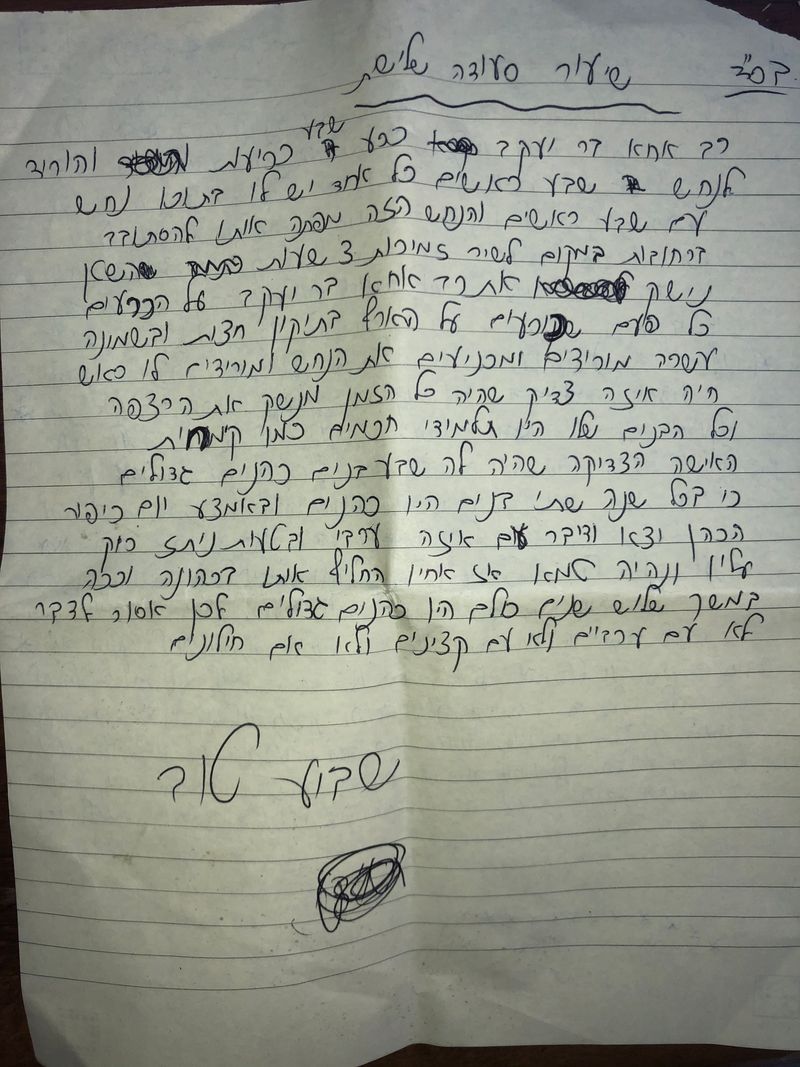 בס"ד
שיעור סעודה שלישת
רב אחא בר יעקב כרע שבע כריעות והוריד
לנחש שבע ראשים כל אחד יש לו בתוכו נחש
עם שבע ראשים והנחש הזה מפתה אותו להסתובב
ברחובות במקום לשיר זמירות 3 שעות
נישק את רב אחא בר יעקב על הכרעים
כל פעם שכורעים על הארץ בתיקון חצות ובשמונה
עשרה מורידים ומכניעים את הנחש ומורידים לו ראש
חיה איזה צדיק שהיה כל הזמן מנשק את הרצפה
וכל הבנים שלו היו תלמידי חכמים כמו קימחית
האישה הצדיקה שהיה לה שבע בנים כהנים גדולים
כי בכל שנה שתי בנים היו כהנים ובאמצע יום כיפור
הכהן יצאו ודיבר עם איזה ערבי ובטעות ניתז רוק
עליו ונהיה טמא אז אחיו החליף אותו בכהונה וככה
במשך שלוש שנים כולם היו כהנים גדולים לכן אסור לדבר
לא עם ערביים ולא עם קצינים ולא אם חילונים
שבוע טוב